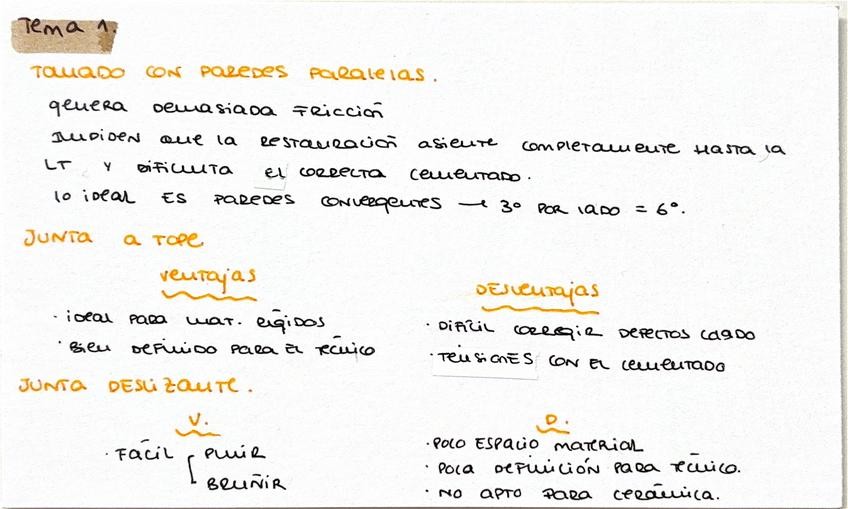 Tema 1.
TALLADO CON PAREDES PARALELAS.
genera demasiada fricción
Impiden que la restauración asiente completamente hasta la
LT y dificulta el correcta cementado.
lo ideal es paredes convergentes → 3º por lado = 6º.
JUNTA A TOPE
Ventajas
Desventajas
· ideal para mat. rígidos
· Difícil corregir defectos lado
· Bien definido para el técnico
· Tensiones con el cementado
JUNTA DESLIZANTE.
V.
D.
· Fácil pulir
bruñir
· Poco espacio material
· Poca definición para técnico.
· No apto para cerámica.